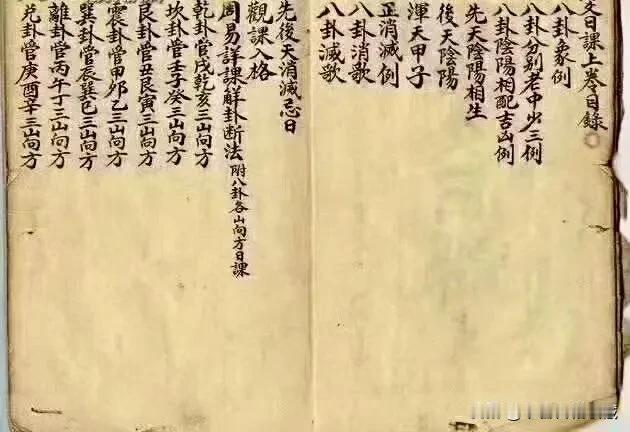 文日課上卷目錄
八卦象例
八卦分别老中少三例
八卦陰陽相配吉凶例
先天陰陽相生
後天陰陽
渾天甲子
正消滅例
八卦消歌
八卦滅歌
先後天消滅忌日
觀課入格
周易詳課解卦断法附八卦各山向方日課
乾卦管戌乾亥三山向方
坎卦管壬子癸三山向方
艮卦管丑艮寅三山向方
震卦管甲卯乙三山向方
巽卦管辰巽巳三山向方
離卦管丙午丁三山向方
兑卦管庚酉辛三山向方